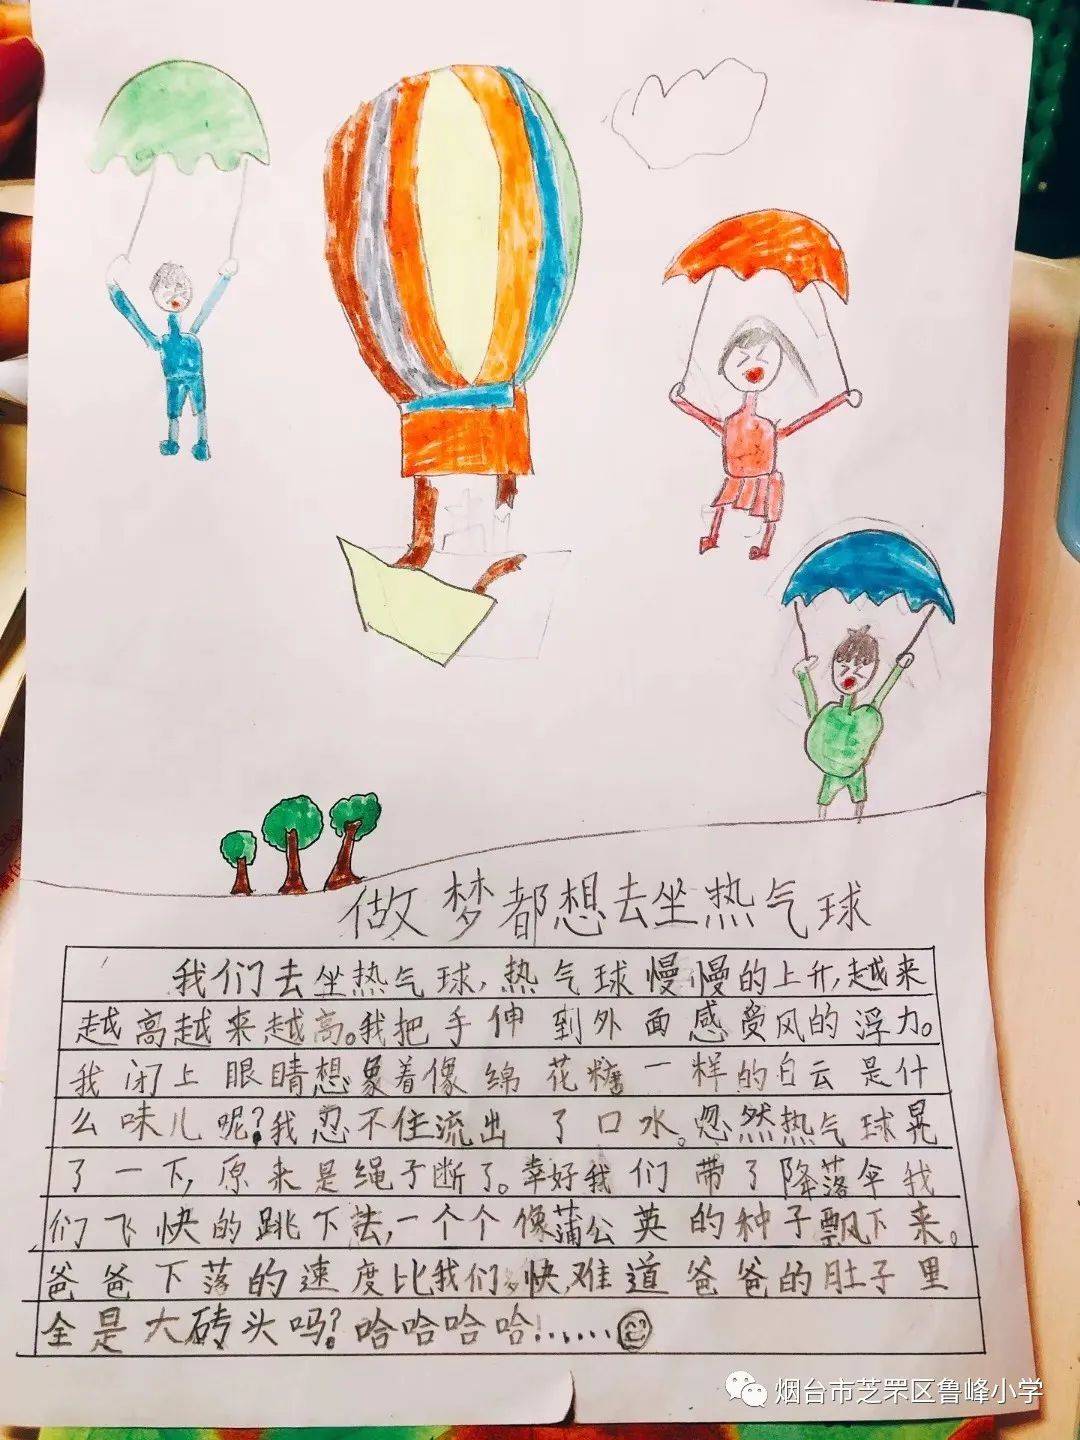 做梦都想去坐热气球
我们去坐热气球,热气球慢慢的上升,越来
越高越来越高。我把手伸到外面感受风的浮力。
我闭上眼睛想象着像绵花糖一样的白云是什
么味儿呢?我忍不住流出了口水。忽然热气球晃
了一下,原来是绳子断了。幸好我们带了降落伞我
们飞快的跳下去,一个个像蒲公英的种子飘下来。
爸爸下落的速度比我们快,难道爸爸的肚子里
全是大砖头吗?哈哈哈哈!……
烟台市芝罘区鲁峰小学